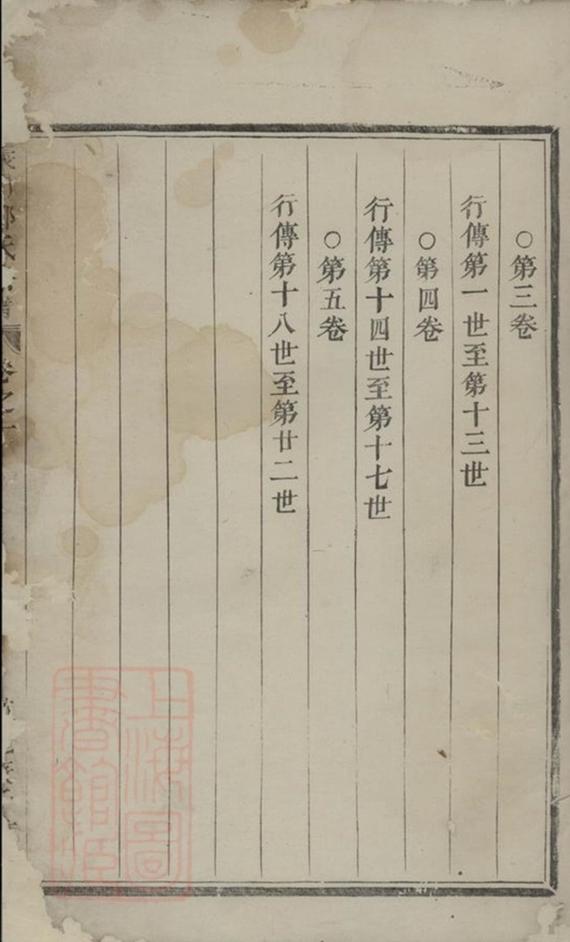 ○第三卷
行傳第一世至第十三世
○第四卷
行傳第十四世至第十七世
○第五卷
行傳第十八世至第廿二世
上海圖
書館藏